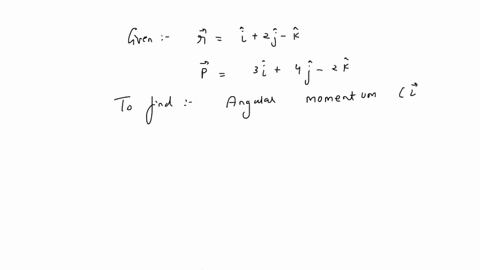 Given :- r⃗ = î + 2ĵ - k̂
P⃗ = 3î + 4ĵ - 2k̂
To find :- Angular momentum (L⃗